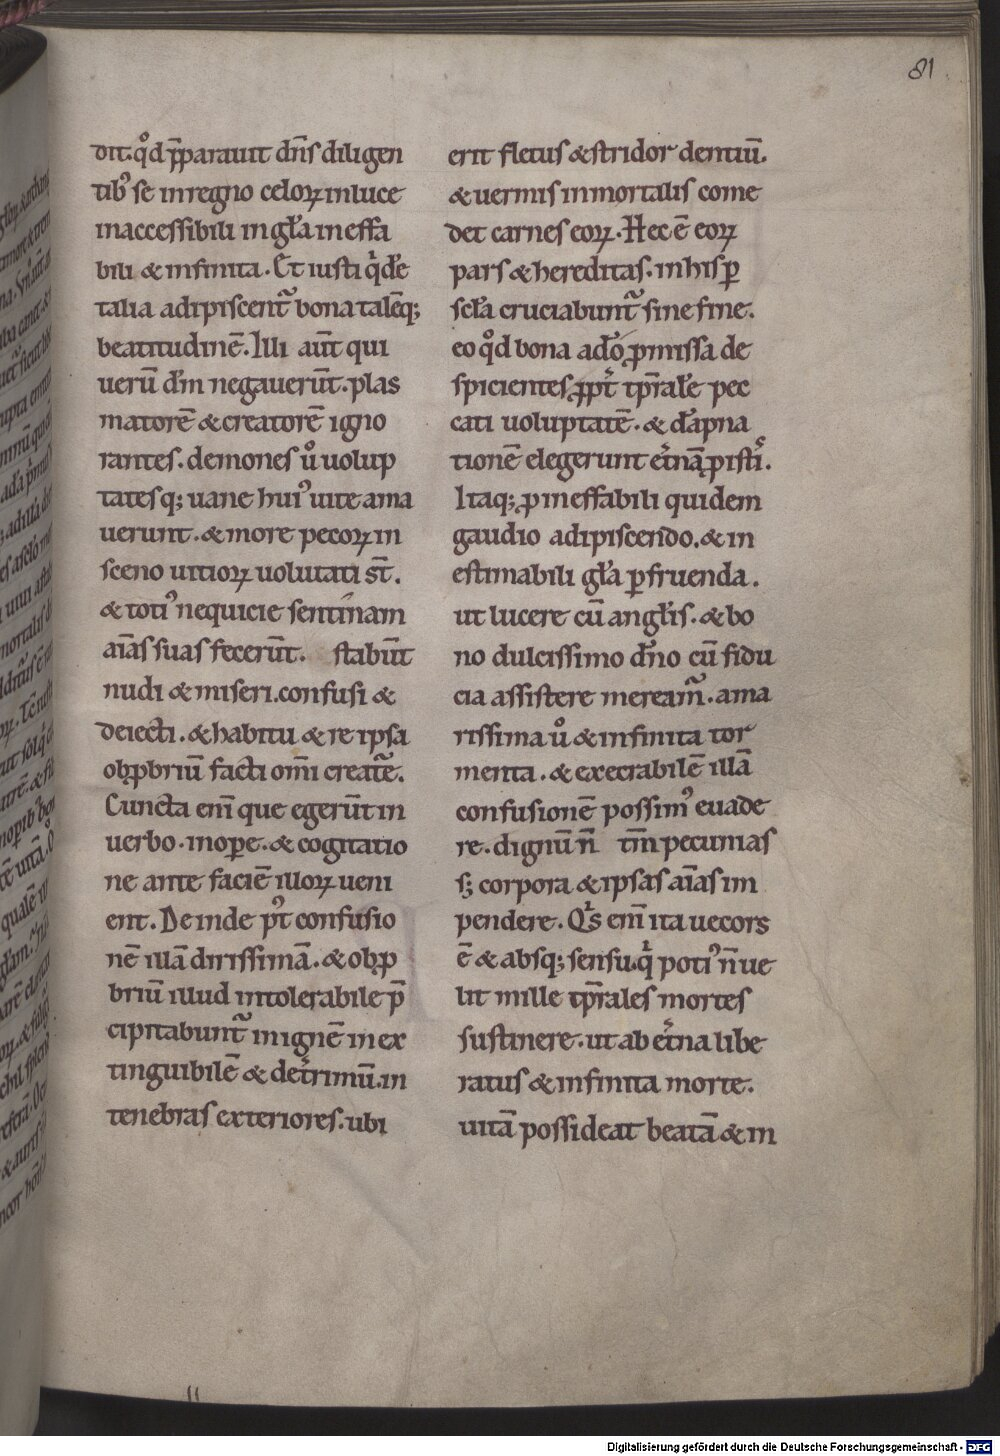 81
dit. qͦd p̄parauit dn̄s diligen
tibꝰ se in regno celoꝝ in luce
inaccessibili in gl̄a ineffa
bili & infinita. Et iusti q̇dē
talia adipiscent᷑ bona talēq;
beatitudinē. Illi aūt qui
uerū dm̄ negauerūt. plas
matorē & creatorē igno
rantes. demones ůo uolup
tatesq; uane huiꝰ uite ama
uerunt. & more pecoꝝ in
sceno uitioꝝ uolutati st̄.
& totiꝰ nequicie sentinam
aīas suas fecerūt. stabūt
nudi & miseri. confusi &
deiecti. & habitu & re ipsa
obꝓbriū facti omī creat᷑e.
Cuncta enī que egerūt in
uerbo. in oꝑe. & cogitatio
ne ante faciē illoꝝ ueni
ent. Deinde p̄t confusio
nē illā dirissimā. & obꝓ
briū illud intolerabile p̄
cipitabunt᷑ in ignē inex
tinguibilē & det̍rimū. in
tenebras exteriores. ubi
erit fletus & stridor dentiū.
& uermis inmortalis come
det carnes eoꝝ. Hec ē eoꝝ
pars & hereditas. in his ꝑ
scl̄a cruciabunt᷑ sine fine.
eo qͦd bona a dō ꝓmissa de
spicientes ꝓpt̍ tp̄ralē pec
cati uoluptatē. & dāpna
tionē elegerunt et̍nā ꝓ isti̍.
Itaq; ꝓ ineffabili quidem
gaudio adipiscendo. & in
estimabili gl̄a ꝑfruenda.
ut lucere cū angl̄is. & bo
no dulcissimo dn̄o cū fidu
cia assistere meream᷑. ama
rissima ůo & infinita tor
menta. & execrabilē illā
confusionē possimꝰ euade
re. dignū n̄ tm̄ pecunias
s; corpora & ipsas aīas im
pendere. Qi̍s enī ita uecors
ē & absq; sensu. qi̍ potiꝰ n̄ ue
lit mille tp̄rales mortes
sustinere. ut ab et̍na libe
ratus & infinita morte.
uitā possideat beatā & in
Digitalisierung gefördert durch die Deutsche Forschungsgemeinschaft - DFG